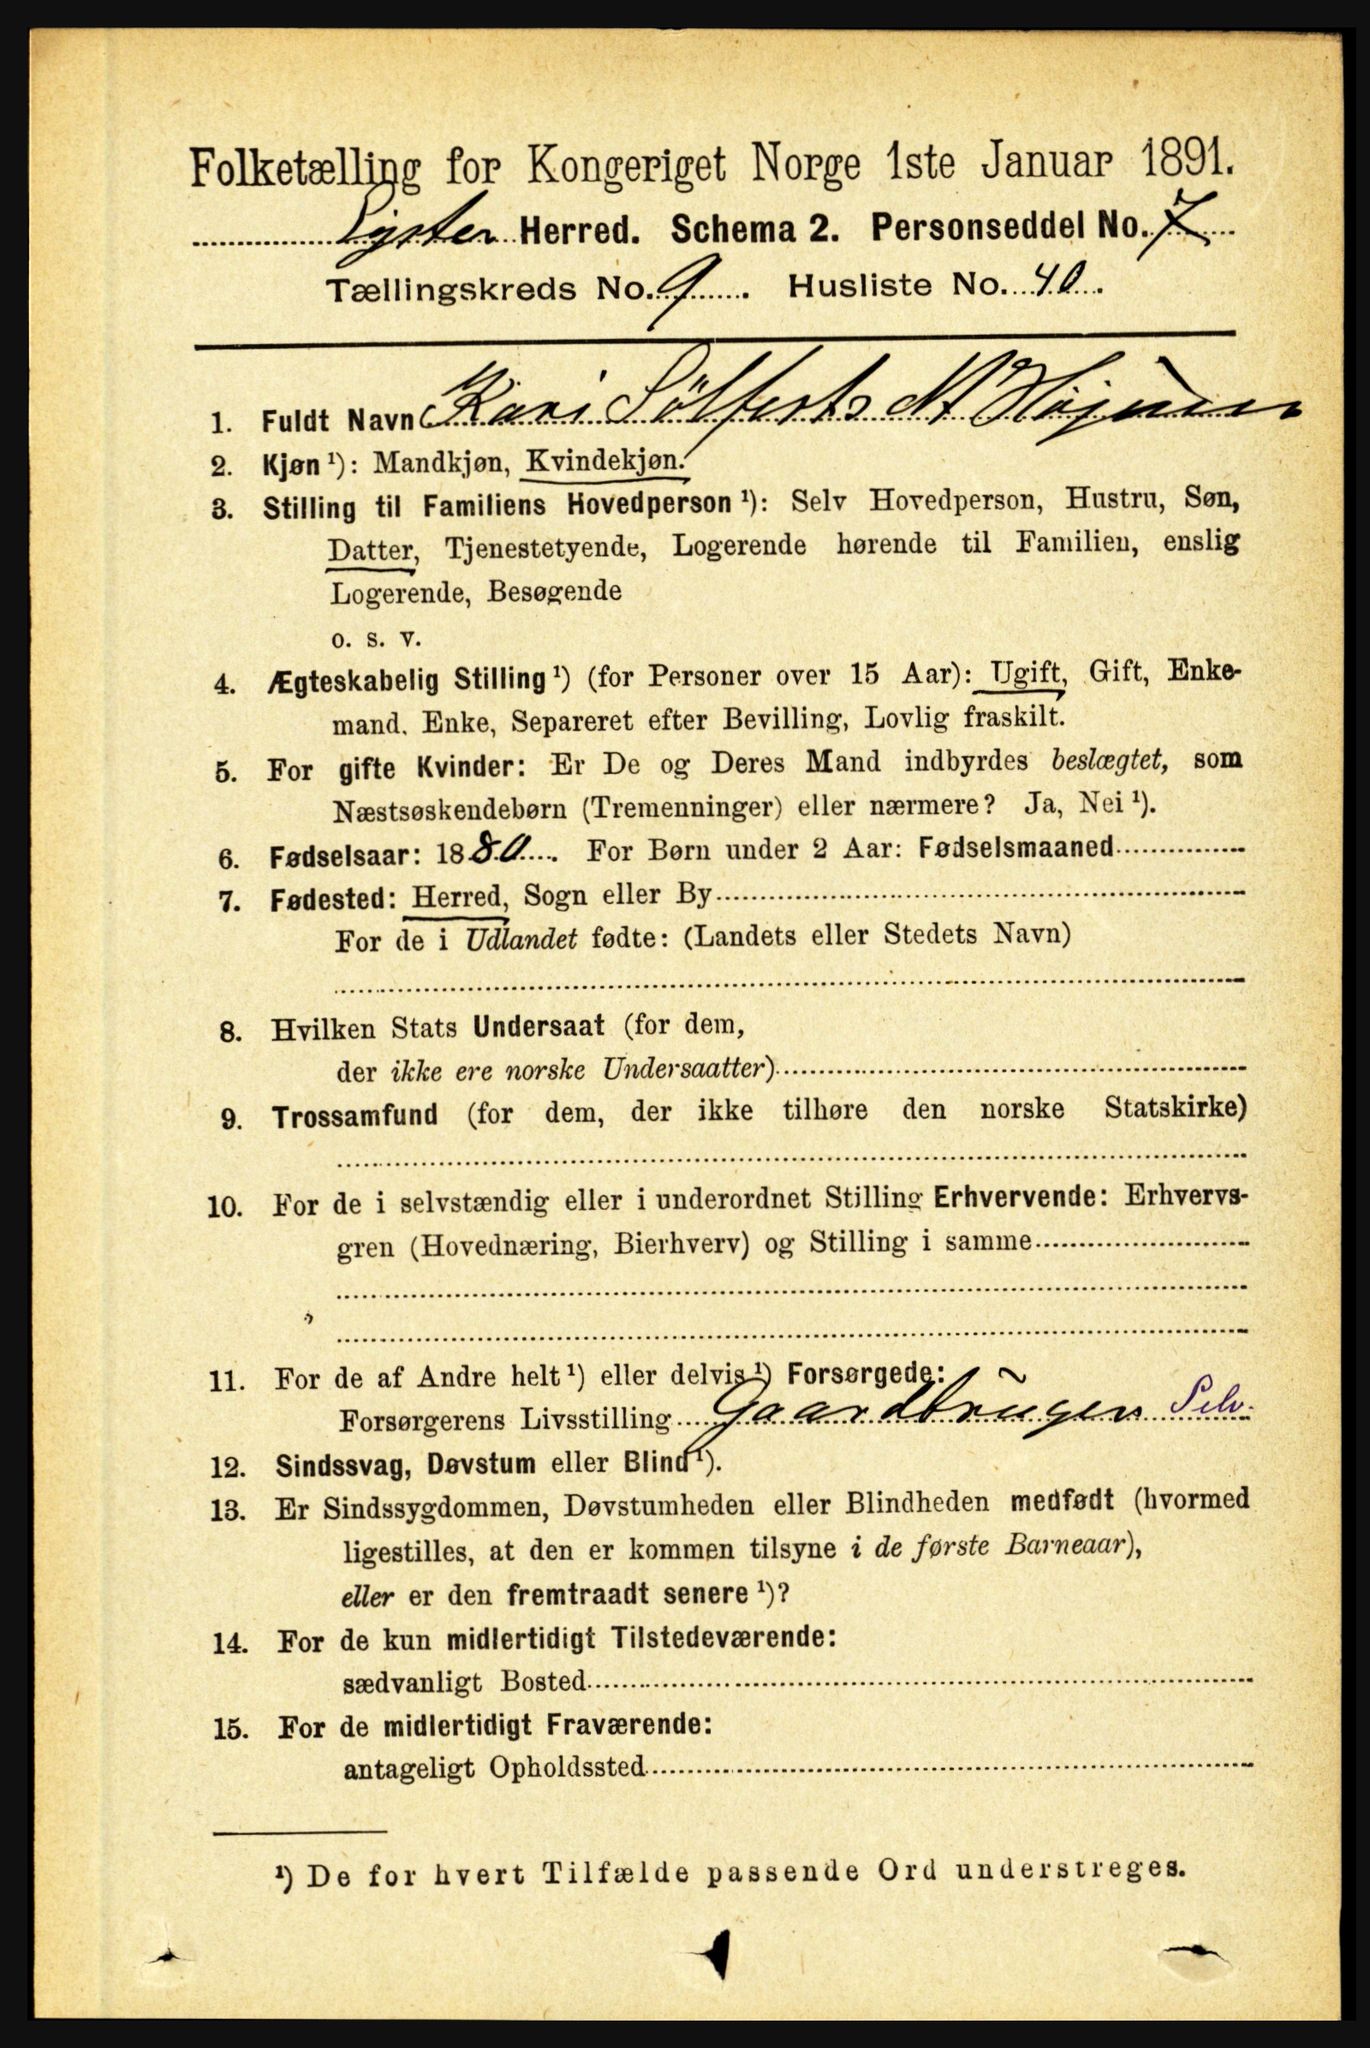 Folketælling for Kongeriget Norge 1ste Januar 1891.
Lyster Herred. Schema 2. Personseddel No. 7
Tællingskreds No. 9 Husliste No. 40.
1. Fuldt Navn Kari Sölferts
2. Kjøn ¹): Mandkjøn, Kvindekjøn.
3. Stilling til Familiens Hovedperson ¹): Selv Hovedperson, Hustru, Søn,
Datter, Tjenestetyende, Logerende hørende til Familien, enslig
Logerende, Besøgende
o. s. v.
4. Ægteskabelig Stilling ¹) (for Personer over 15 Aar): Ugift, Gift, Enke-
mand. Enke, Separeret efter Bevilling, Lovlig fraskilt.
5. For gifte Kvinder: Er De og Deres Mand indbyrdes beslægtet, som
Næstsøskendebørn (Tremenninger) eller nærmere? Ja, Nei ¹).
6. Fødselsaar: 1880. For Børn under 2 Aar: Fødselsmaaned
7. Fødested: Herred, Sogn eller By
For de i Udlandet fødte: (Landets eller Stedets Navn)
8. Hvilken Stats Undersaat (for dem,
der ikke ere norske Undersaatter)
9. Trossamfund (for dem, der ikke tilhøre den norske Statskirke)
10. For de i selvstændig eller i underordnet Stilling Erhvervende: Erhvervs-
gren (Hovednæring, Bierhverv) og Stilling i samme
11. For de af Andre helt ¹) eller delvis ¹) Forsørgede:
Forsørgerens Livsstilling Gaardbruger Selv.
12. Sindssvag, Døvstum eller Blind ¹).
13. Er Sindssygdommen, Døvstumheden eller Blindheden medfødt (hvormed
ligestilles, at den er kommen tilsyne i de første Barneaar),
eller er den fremtraadt senere ¹)?
14. For de kun midlertidigt Tilstedeværende:
sædvanligt Bosted
15. For de midlertidigt Fraværende:
antageligt Opholdssted
¹) De for hvert Tilfælde passende Ord understreges.